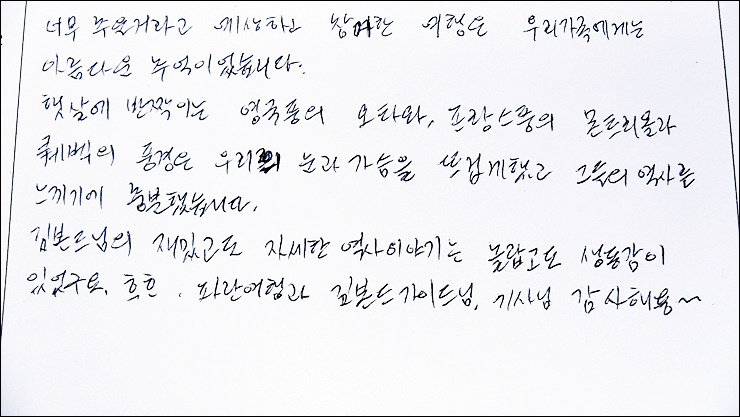 너무 추울거라고 예상하고 참여한 여행은 우리가족에게는
아름다운 추억이었습니다.
햇살에 반짝이는 영국풍의 오타와, 프랑스풍의 몬트리올과
퀘벡의 풍경은 우리의 눈과 가슴을 뜨겁게했고 그들의 역사를
느끼기에 충분했습니다.
김본드님의 재밌고도 자세한 역사이야기는 놀랍고도 생동감이
있었구요, 흐흐. 파란여행과 김본드가이드님, 기사님 감사해용~